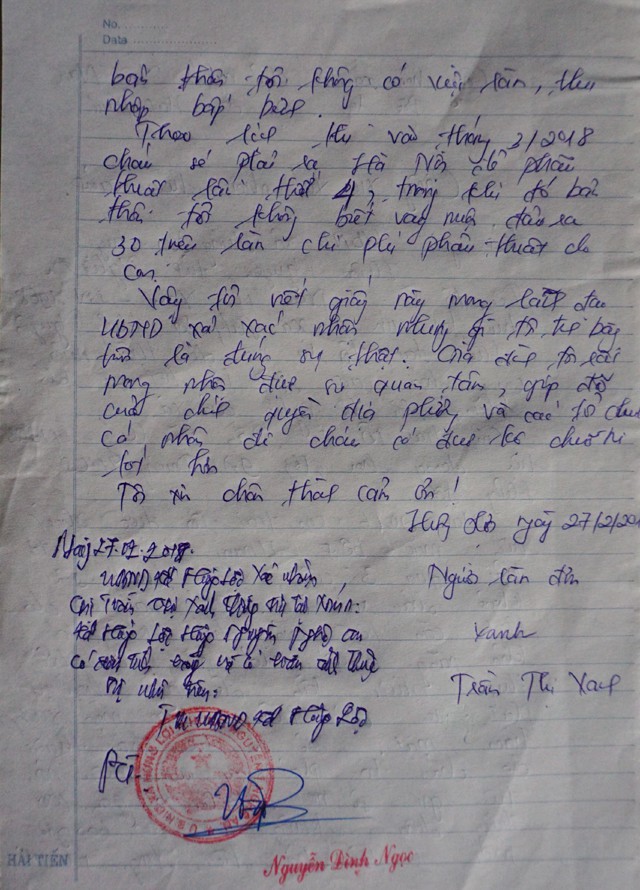 No.
Data
bản thân tôi không có việc làm, thu
nhập bấp bênh.
Theo lịch thì vào tháng 3/2018
cháu sẽ phải ra Hà Nội để phẫu
thuật lần thứ 4, trong khi đó bản
thân tôi không biết vay mượn đâu ra
30 triệu làm chi phí phẫu thuật cho
con.
Vậy tôi viết giấy này mong lãnh đạo
UBND xã xác nhận những gì tôi trình bày
trên là đúng sự thật. Gia đình tôi rất
mong nhận được sự quan tâm, giúp đỡ
của chính quyền địa phương và các tổ chức
cá nhân để cháu có được
tốt hơn
Tôi xin chân thành cảm ơn!
ngày 27/2/201
Ngày 27.02.2018.
UBND xã Hưng Lợi xác nhận
Người làm đơn
Chị Trần Thị Xanh
xã Hưng Lợi Hưng Nguyên Nghệ An
Xanh
Trần Thị Xanh
TM UBND xã Hưng Lợi
PCT
HẢI TIẾN
Nguyễn Đình Ngọc